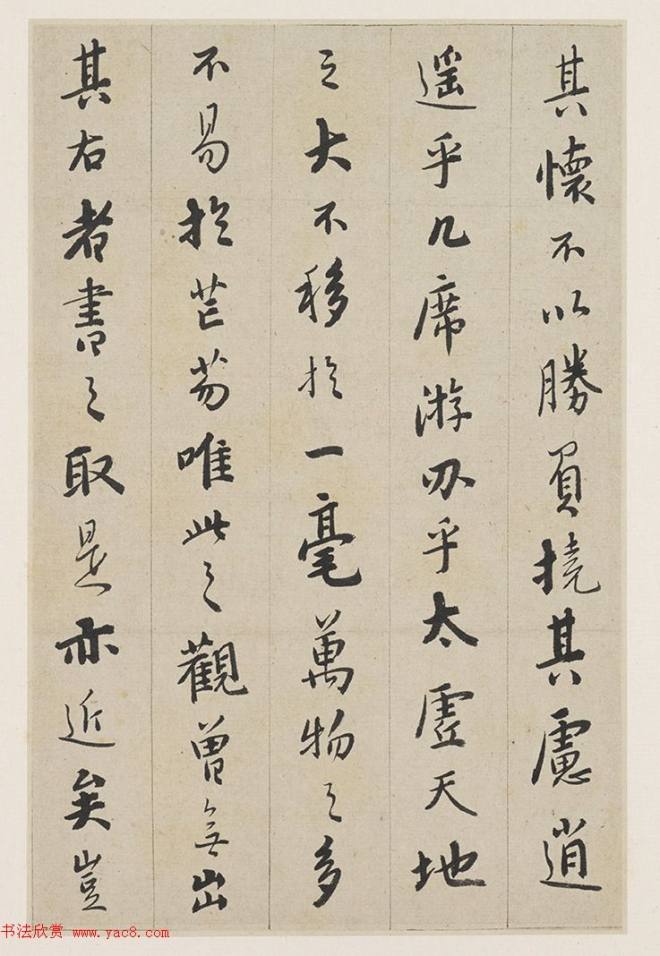 其懷不以勝負撓其慮逍
遥乎几席游刃乎太虛天地
之大不移於一毫萬物之多
不易於芒芴唯此之觀曾無出
其右者書之取是亦近矣豈
书法欣赏 www.yac8.com